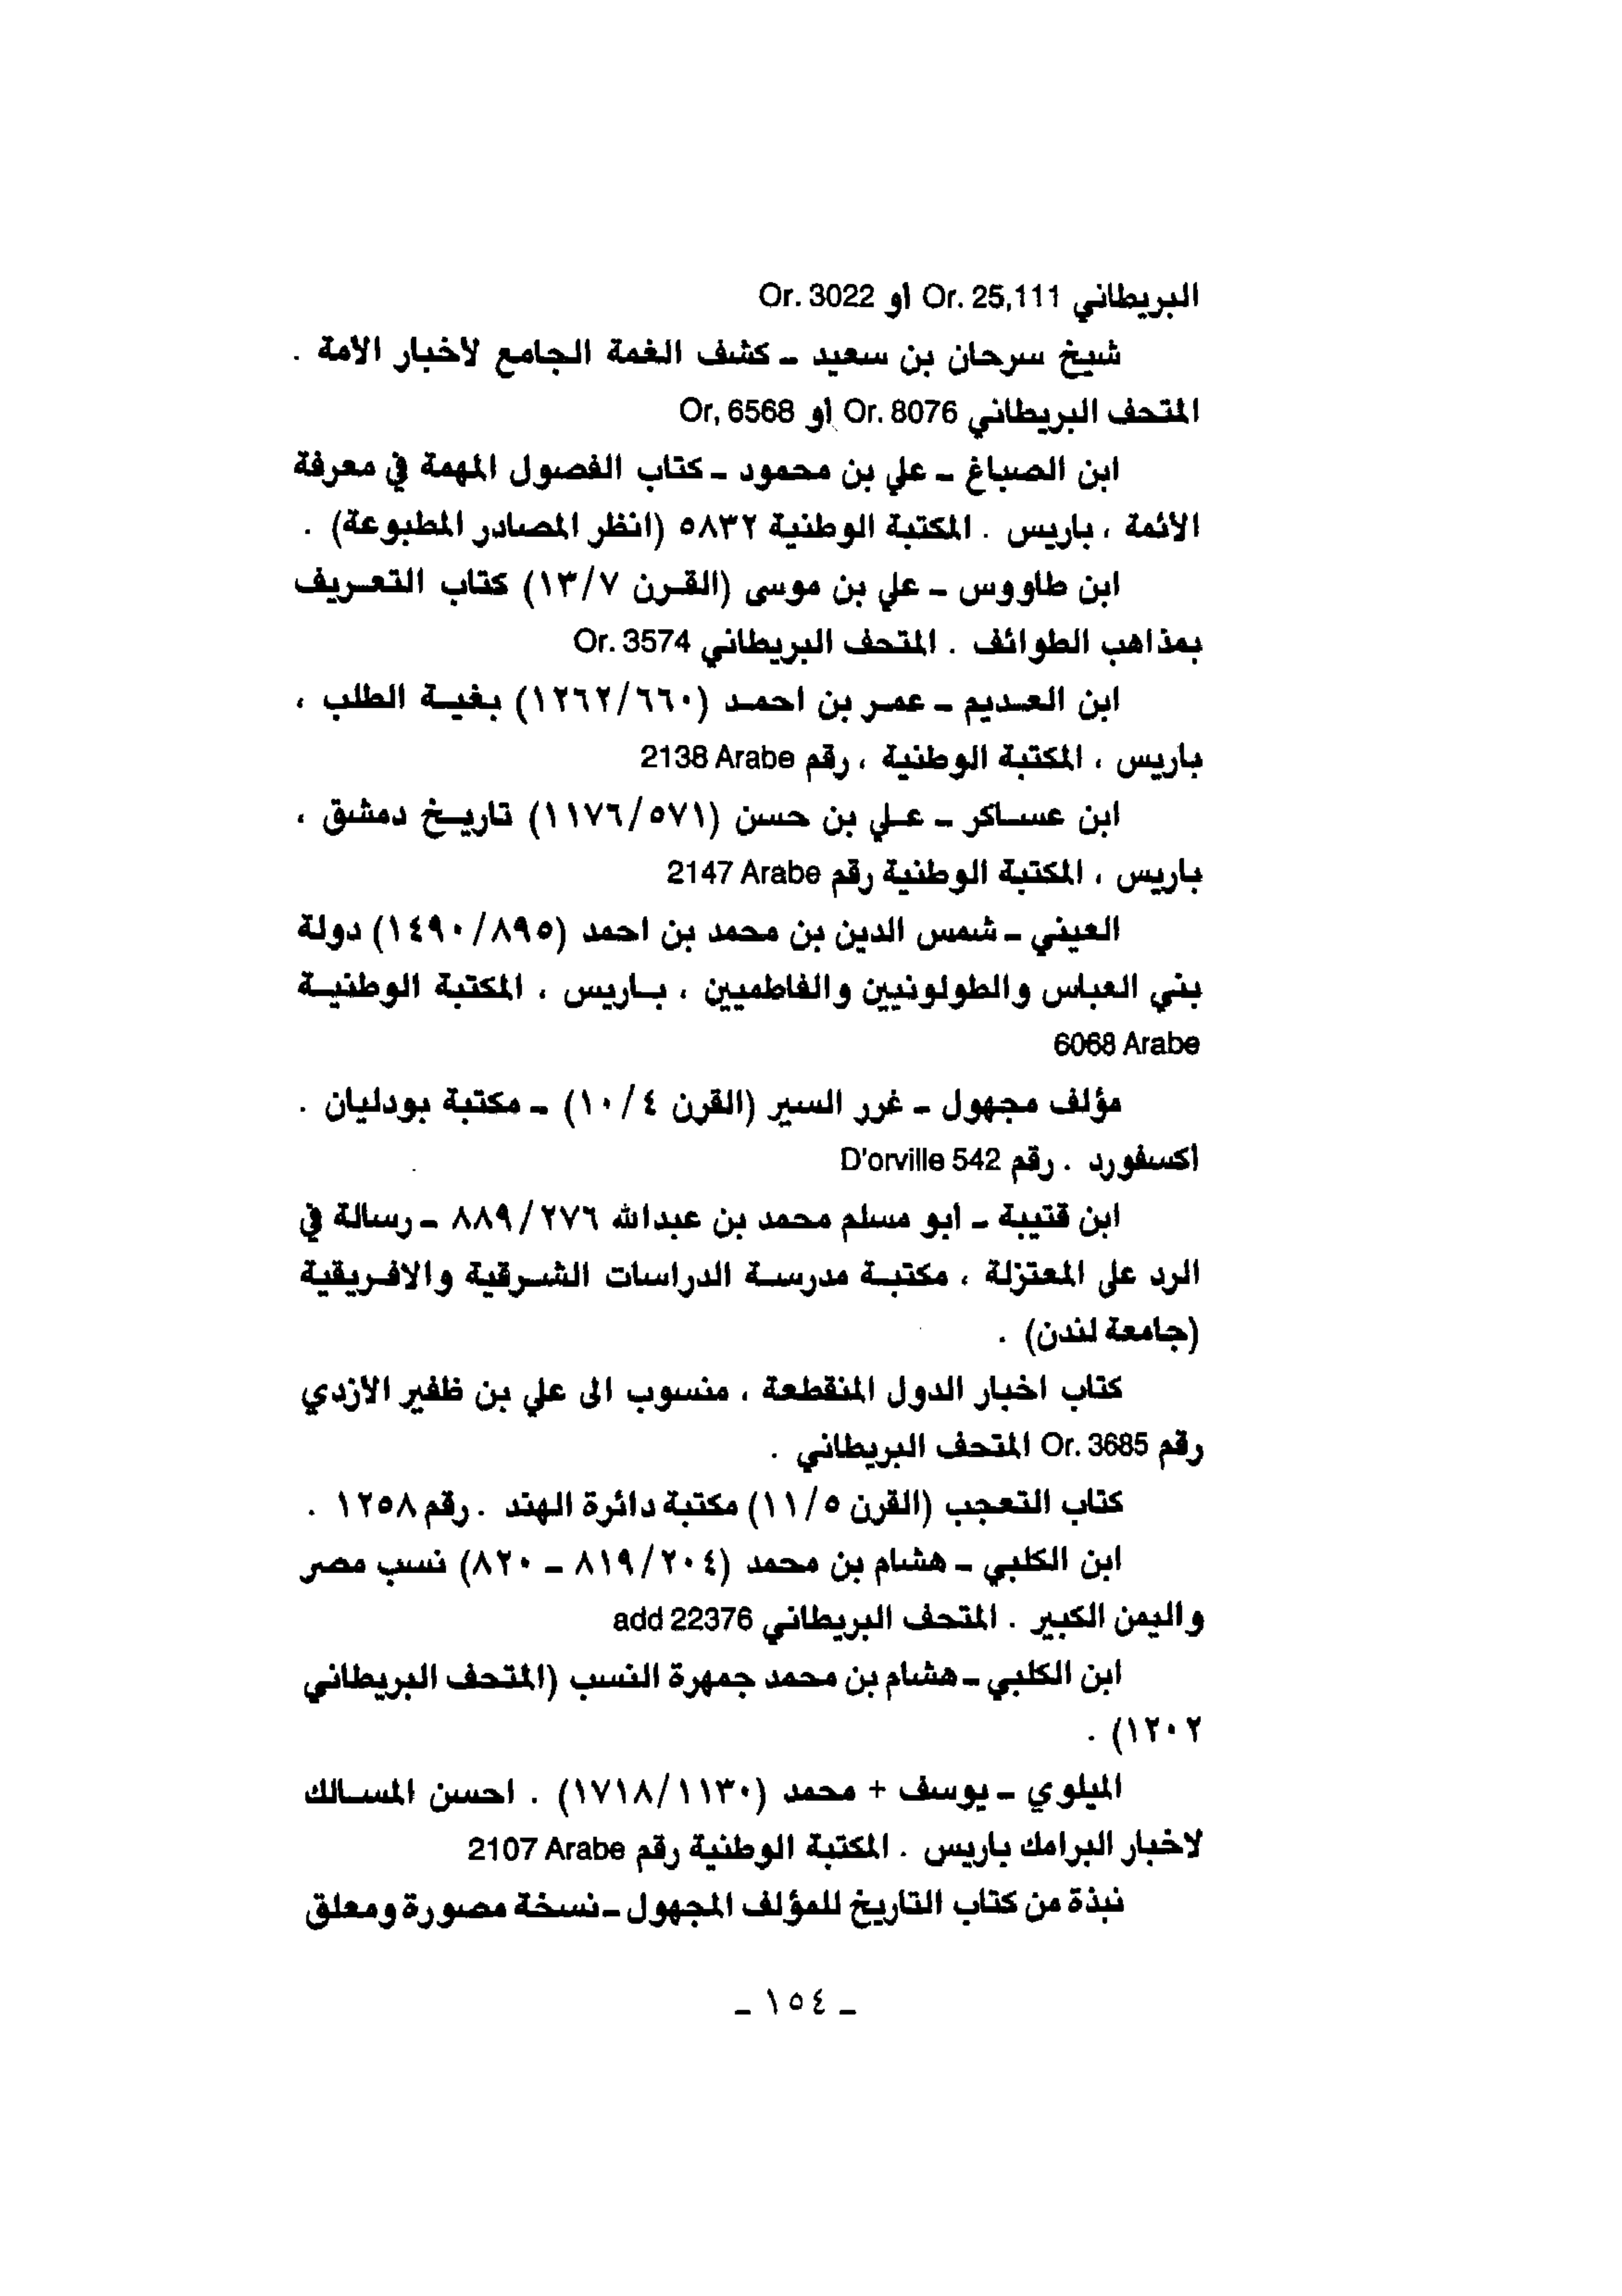 البريطاني Or. 25,111 أو Or. 3022
شيخ سرحان بن سعيد ـ كشف الغمة الجامع لاخبار الامة .
المتحف البريطاني Or. 8076 أو Or, 6568
ابن الصباغ ـ علي بن محمود ـ كتاب الفصول المهمة في معرفة
الائمة ، باريس . المكتبة الوطنية ٥٨٣٢ (انظر المصادر المطبوعة) .
ابن طاووس ـ علي بن موسى (القرن ١٣/٧) كتاب التعريف
بمذاهب الطوائف . المتحف البريطاني Or. 3574
ابن العديم ـ عمر بن احمد (١٢٦٢/٦٦٠) بغية الطلب ،
باريس ، المكتبة الوطنية ، رقم 2138 Arabe
ابن عساكر ـ علي بن حسن (١١٧٦/٥٧١) تاريخ دمشق ،
باريس ، المكتبة الوطنية رقم 2147 Arabe
العيني ـ شمس الدين بن محمد بن احمد (١٤٩٠/٨٩٥) دولة
بني العباس والطولونيين والفاطميين ، باريس ، المكتبة الوطنية
6068 Arabe
مؤلف مجهول ـ غرر السير (القرن ١٠/٤) ـ مكتبة بودليان .
اكسفورد . رقم D'orville 542
ابن قتيبة ـ ابو مسلم محمد بن عبدالله ٨٨٩/٢٧٦ ـ رسالة في
الرد على المعتزلة ، مكتبة مدرسة الدراسات الشرقية والافريقية
(جامعة لندن) .
كتاب اخبار الدول المنقطعة ، منسوب الى علي بن ظفير الازدي
رقم Or. 3685 المتحف البريطاني .
كتاب التعجب (القرن ١١/٥) مكتبة دائرة الهند . رقم ١٢٥٨ .
ابن الكلبي ـ هشام بن محمد (٨١٩/٢٠٤ ـ ٨٢٠) نسب مصر
واليمن الكبير . المتحف البريطاني add 22376
ابن الكلبي ـ هشام بن محمد جمهرة النسب (المتحف البريطاني
١٢٠٢) .
الميلوي ـ يوسف + محمد (١٧١٨/١١٣٠) . احسن المسالك
لاخبار البرامك باريس . المكتبة الوطنية رقم 2107 Arabe
نبذة من كتاب التاريخ للمؤلف المجهول ـ نسخة مصورة ومعلق
ـ ١٥٤ ـ